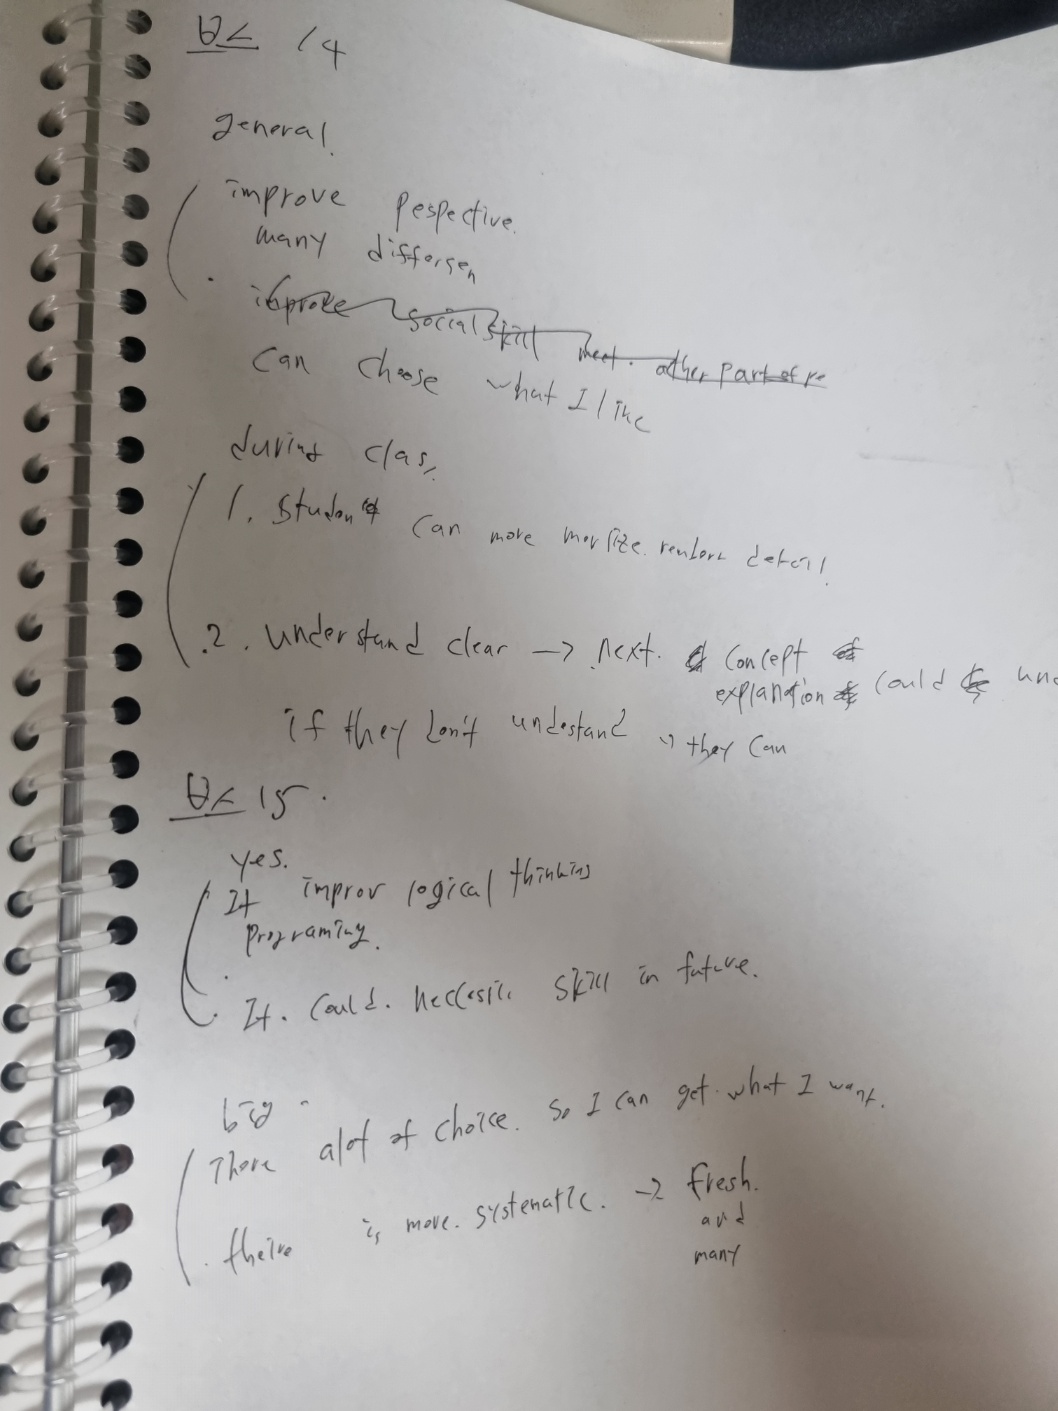 14
general.
improve pespective.
many differsen
improve social skill meet. other part of re
can choose what I like
during clas,
1. Student can more detail.
2. understand clear → next. concept
explanation could und
if they don't undestand → they can
15.
yes.
It improv logical thinking
programing.
It. could. skill in future.
big
There alot of choice. so I can get what I want.
theire is more. systematic. → fresh.
and
many